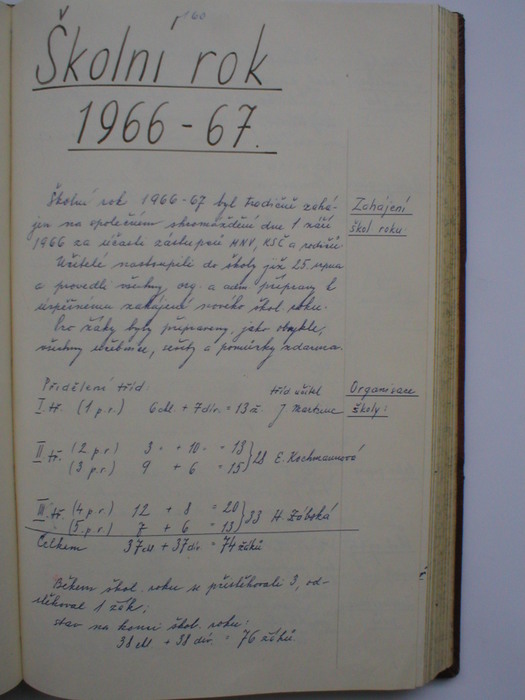 160
Školní rok
1966-67.
Školní rok 1966-67 byl tradičně zahá-
jen na společném shromáždění dne 1 září
1966 za účasti zástupců MNV, KSČ a rodičů.
Zahájení
škol roku:
Učitelé nastoupili do školy již 25. srpna
a provedli všechny org. a adm. přípravy k
úspěšnému zahájení nového škol. roku.
Pro žáky byly připraveny, jako obykle,
všechny učebnice, sešity a pomůcky zdarma.
Přidělení tříd: tříd. učitel
Organisace
školy:
I. tř. (1 p.r.) 6 chl. + 7 dív. = 13 ž. J. Martinec
II tř. (2 p.r.) 3 + 10 = 13
(3 p.r.) 9 + 6 = 15 } 28 E. Kochmannová
III tř. (4 p.r.) 12 + 8 = 20
(5. p.r.) 7 + 6 = 13 } 33 H. Zóbská
Celkem 37 chl + 37 dív. = 74 žáků
Během škol. roku se přistěhovali 3, od-
stěhoval 1 žák;
stav na konci škol. roku:
38 chl + 38 dív. = 76 žáků.